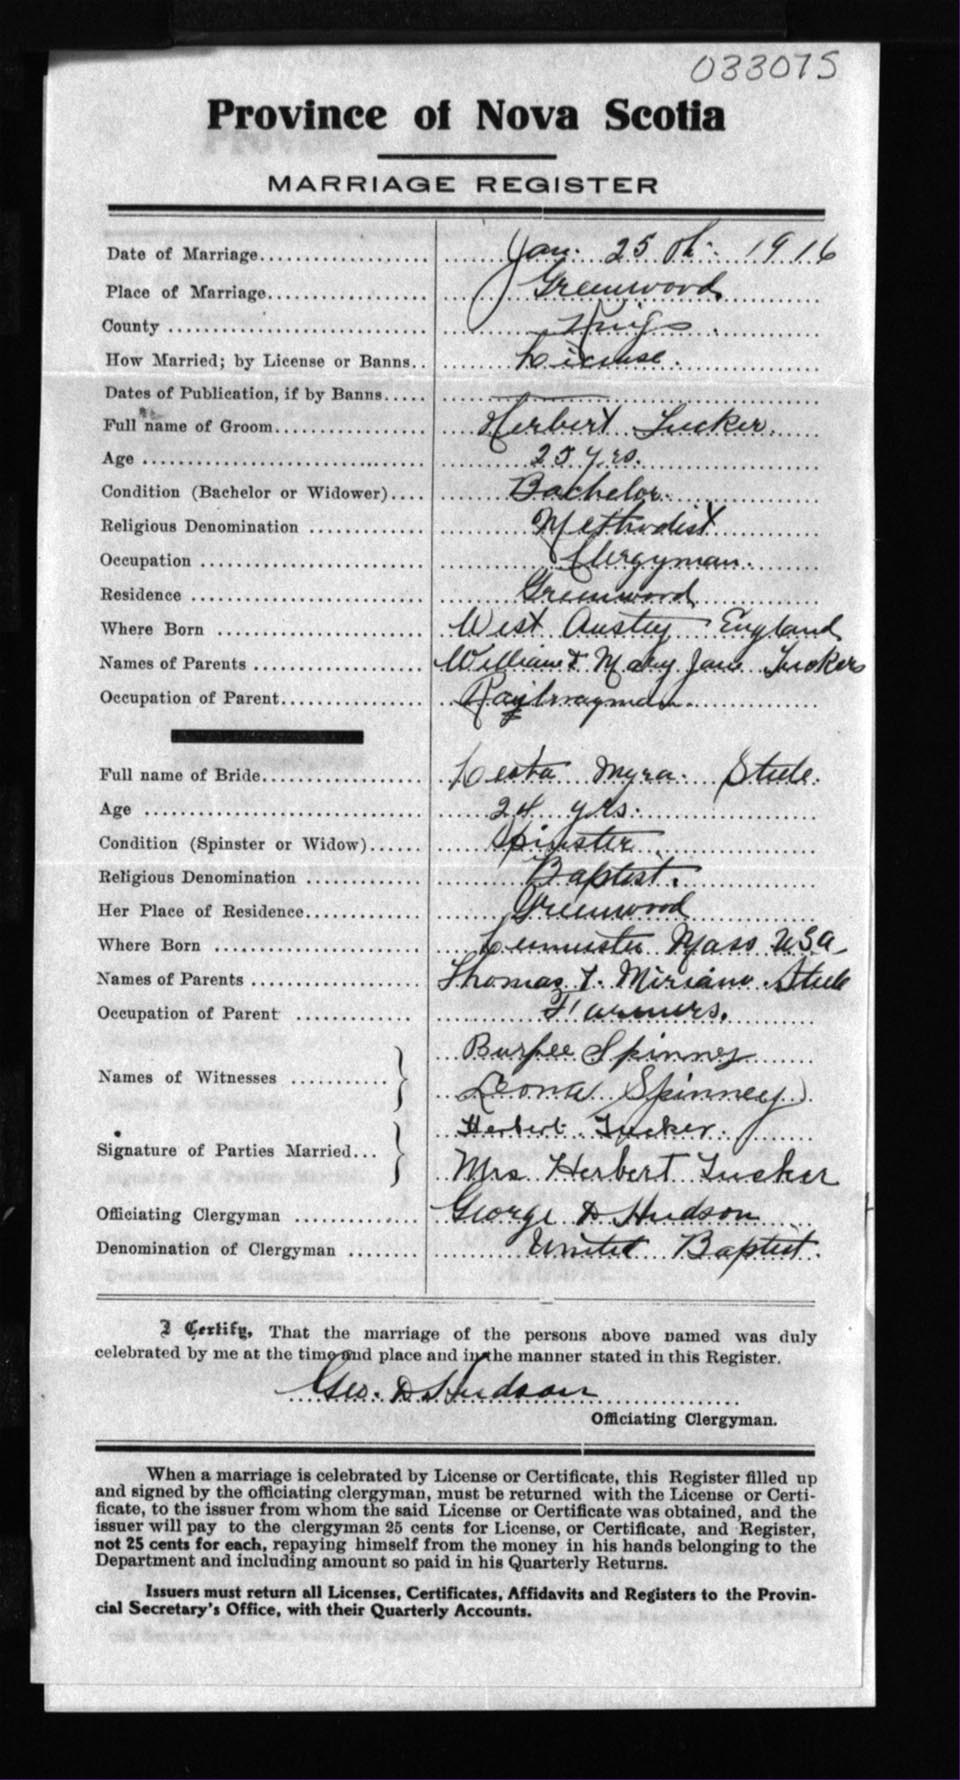 033075
Province of Nova Scotia
MARRIAGE REGISTER
Date of Marriage.................... Jan. 25th. 1916
Place of Marriage................... Greenwood
County .............................. Kings
How Married; by License or Banns.. License.
Dates of Publication, if by Banns..... ———
Full name of Groom.................. Herbert Tucker.
Age .............................. 25 yrs.
Condition (Bachelor or Widower).... Bachelor.
Religious Denomination .............. Methodist
Occupation .......................... Clergyman.
Residence ........................... Greenwood
Where Born ......................... West England
Names of Parents ..................... William & Mary Jane Tuckers
Occupation of Parent................. Railwayman.
Full name of Bride................... Myra. Steele.
Age ................................. 24 yrs.
Condition (Spinster or Widow)...... Spinster
Religious Denomination .............. Baptist.
Her Place of Residence.............. Greenwood
Where Born ......................... Leominster Mass U.S.A.
Names of Parents .................... Thomas & Miriam Steele
Occupation of Parent .............. Farmers.
Names of Witnesses ........... } Burpee Spinney
Leona Spinney
Signature of Parties Married... } Herbert Tucker.
Mrs Herbert Tucker
Officiating Clergyman .............. George D Hudson
Denomination of Clergyman ........ United Baptist.
I Certify, That the marriage of the persons above named was duly
celebrated by me at the time and place and in the manner stated in this Register.
Geo. D Hudson
Officiating Clergyman.
When a marriage is celebrated by License or Certificate, this Register filled up
and signed by the officiating clergyman, must be returned with the License or Certi-
ficate, to the issuer from whom the said License or Certificate was obtained, and the
issuer will pay to the clergyman 25 cents for License, or Certificate, and Register,
not 25 cents for each, repaying himself from the money in his hands belonging to the
Department and including amount so paid in his Quarterly Returns.
Issuers must return all Licenses, Certificates, Affidavits and Registers to the Provin-
cial Secretary's Office, with their Quarterly Accounts.